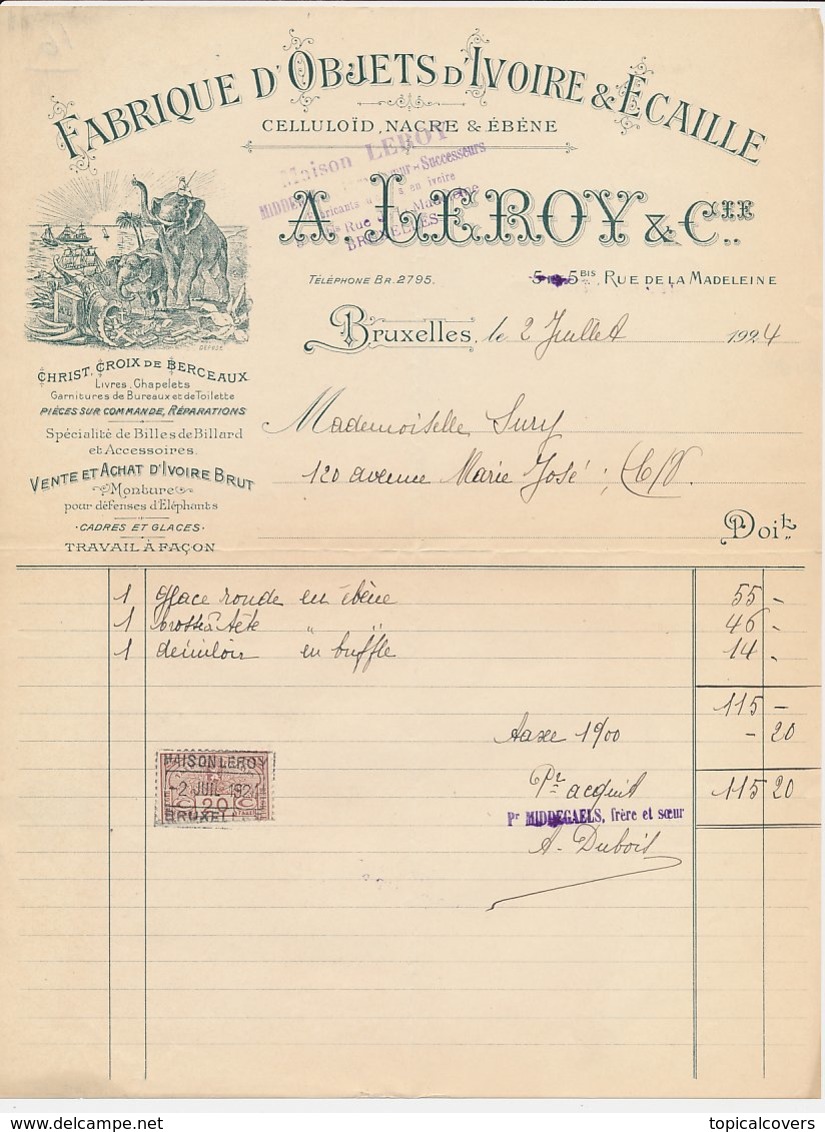 FABRIQUE D'OBJETS D'IVOIRE & ECAILLE
CELLULOÏD, NACRE & ÉBÈNE
Maison LEROY
Sœur-Successeurs
en ivoire
Rue Madeleine
BRUXELLES
A. LEROY & CIE.
TÉLÉPHONE BR. 2795.
5BIS, RUE DE LA MADELEINE
DEPOSE
Bruxelles, le 2 Juillet 1924
CHRIST, CROIX DE BERCEAUX
Livres, Chapelets
Garnitures de Bureaux et de Toilette
PIÈCES SUR COMMANDE, RÉPARATIONS
Spécialité de Billes de Billard
et Accessoires.
VENTE ET ACHAT D'IVOIRE BRUT
Monture
pour défenses d'Eléphants
CADRES ET GLACES
TRAVAIL À FAÇON
Mademoiselle Sury
120 avenue Marie José ; E/V.
Doit
1 glace ronde en ébène 55 -
1 brosse à tête " " 46 -
1 démêloir en buffle 14 -
115 -
taxe 1%00 - 20
Pr acquit 115 20
Pr MIDDEGAELS, frère et sœur
A. Dubois
MAISON LEROY
-2 JUIL 1924
20
BRUXEL
www.delcampe.net
topicalcovers